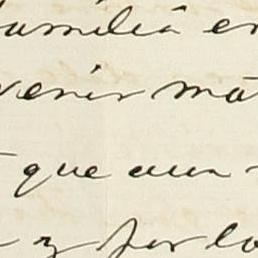 familia en
venir ma
que aun
y por lo